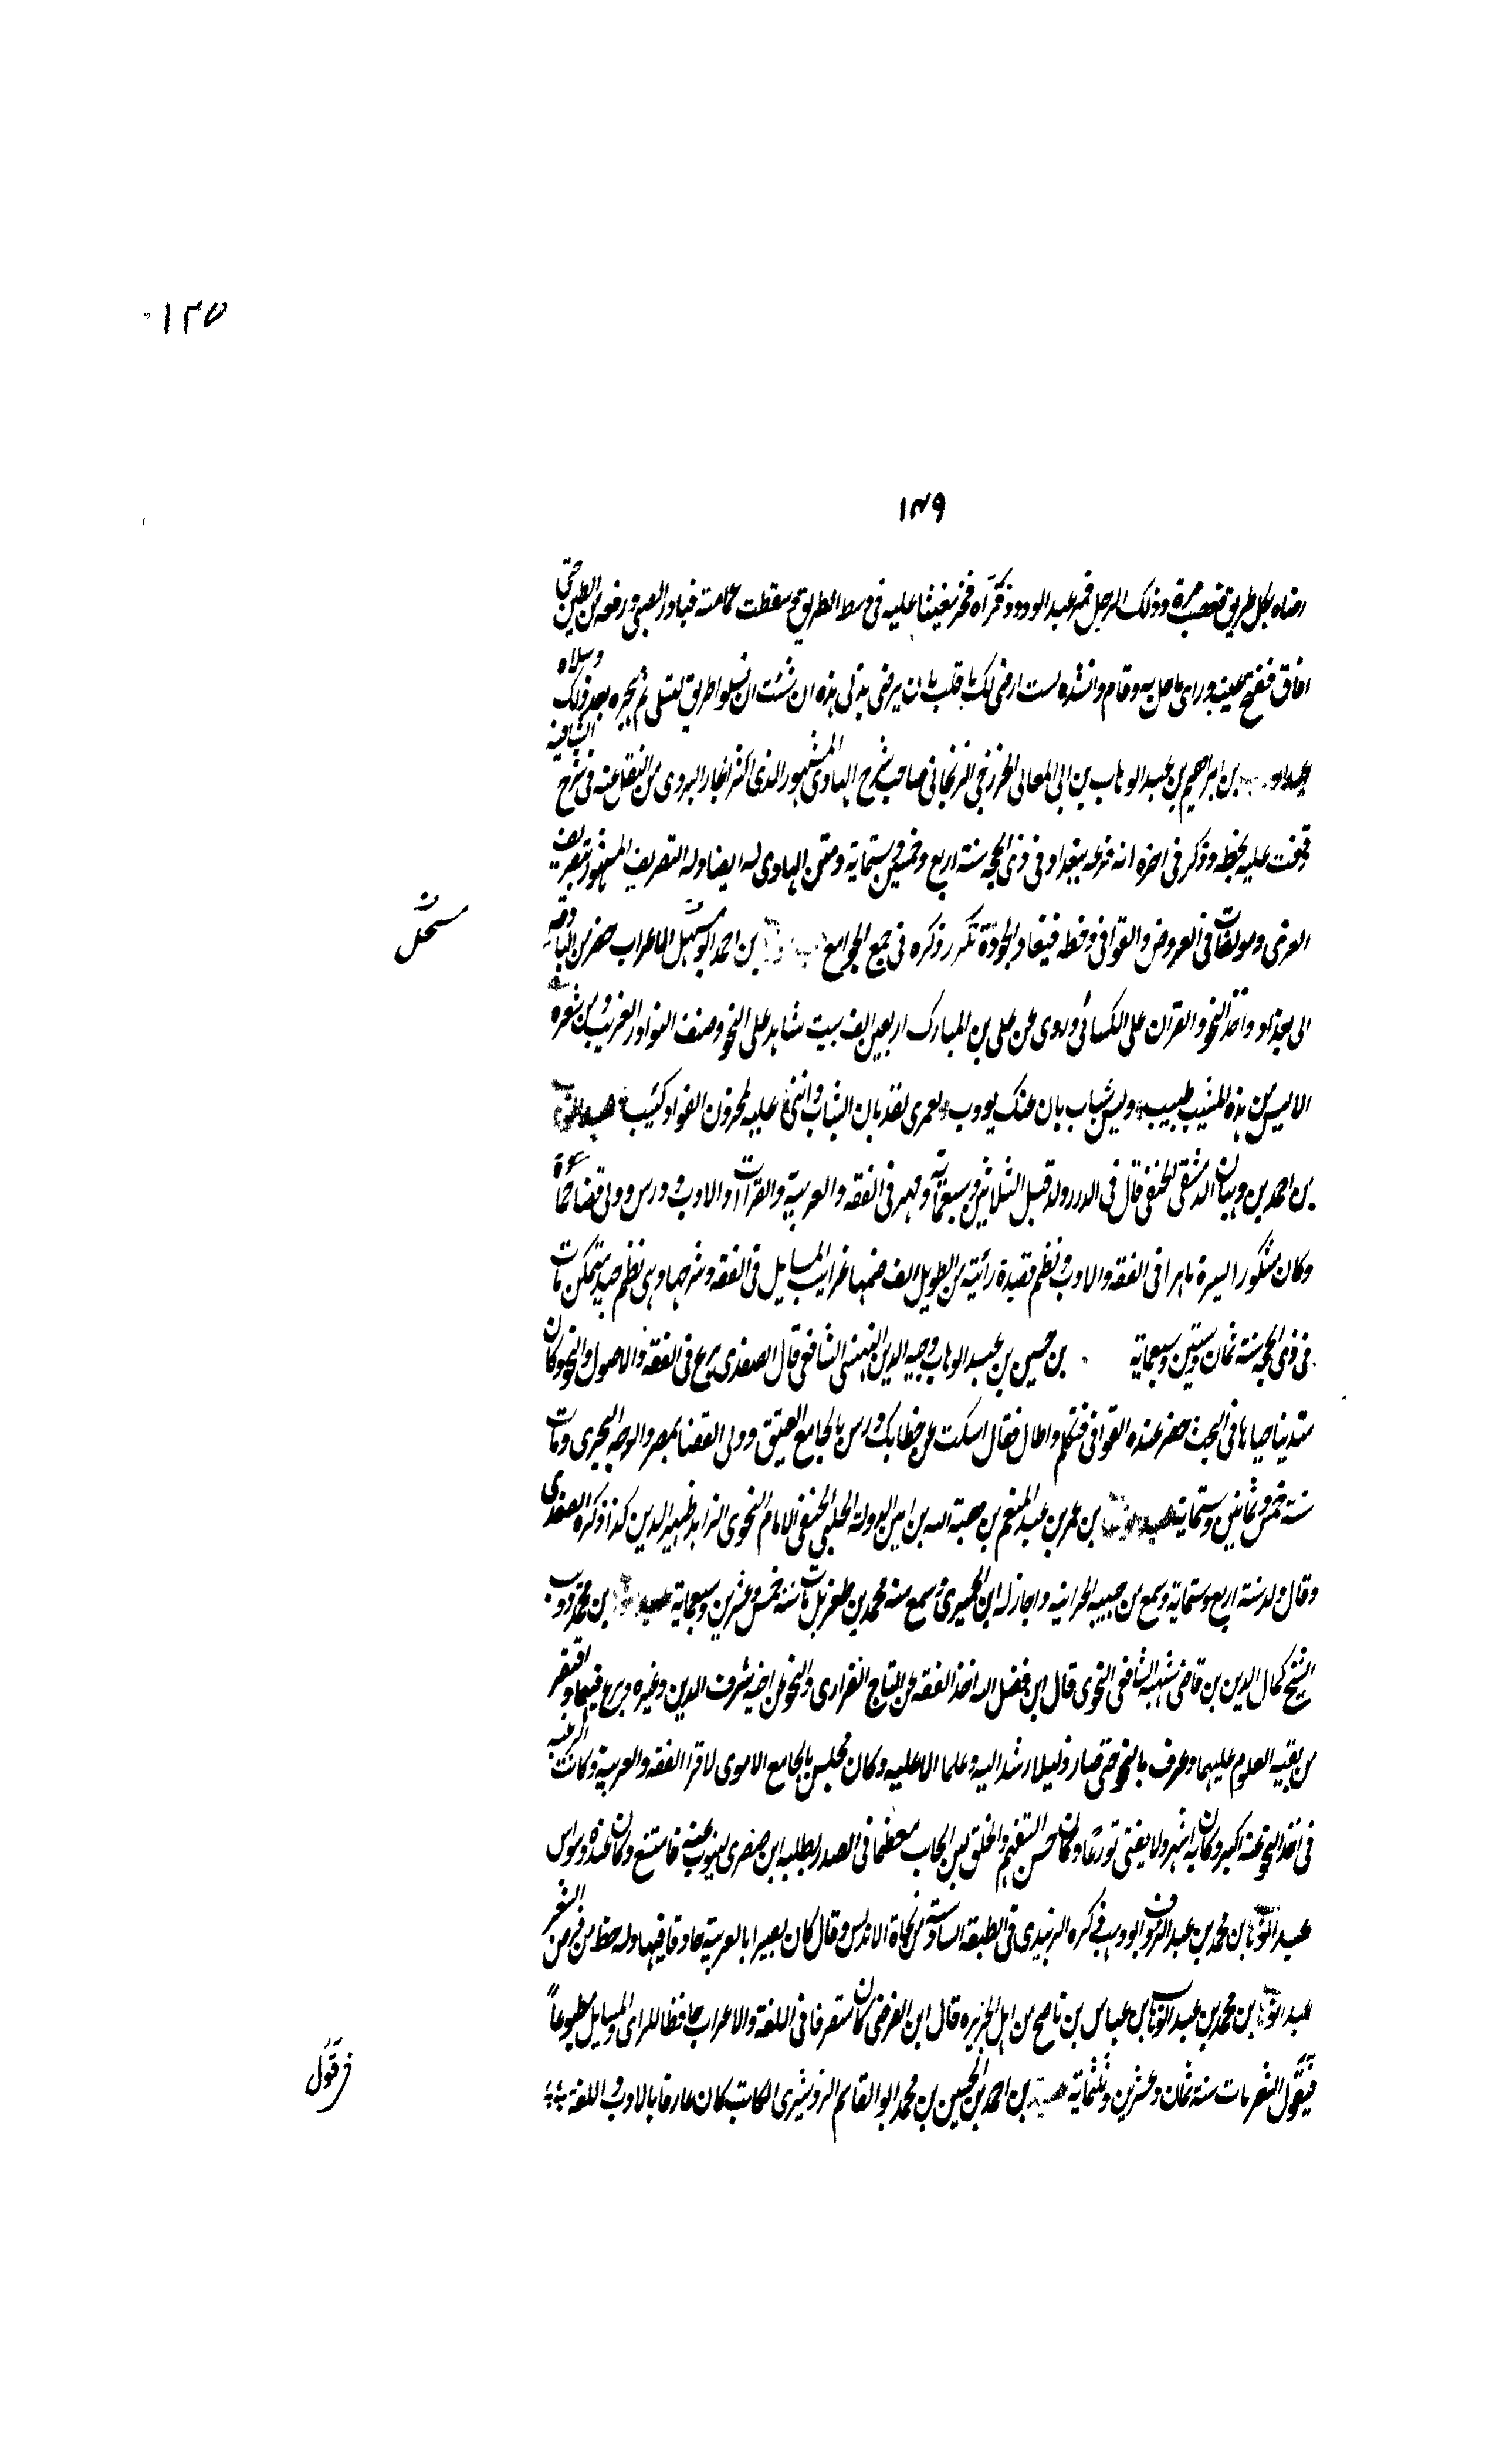 ١٢٥
١٤٩
رضاه بكل طريق فغضب مرة وذلك الرجل فمر عبد الودود فرآه فخر مغشيا عليه فى وسط الطريق وسقطت عمامته فبادر الصبى ورفعه من الطين حتى
افاق ففتح عينيه وراى ما حل به وقام وانشده لست ارضى لك يا قلب بان يرضى بذلى هذه ان شئت ان تسلو طريق لتسلى ثم هجره بعد ذلك وسلاه
بن ابراهيم بن عبد الوهاب بن ابى المعالى الخزرجى الزنجانى صاحب شرح الهادى المشهور الذى اكثر الجاربردى من النقل عنه فى شرح الشافية
وقفت عليه بخطه وذكر فى اخره انه فرغه ببغداد فى ذى الحجه سنة اربع وخمسين وستماية ومتن الهادى له ايضا وله التصريف المشهور بتصريف
العزى ومولفات فى العروض والقوافى وخطه فى غاية الجودة تكرر ذكره فى جمع الجوامع بن احمد ابو مسحل الاعرابى حضر من البادية
الى بغداد واخذ النحو والقران على الكسائى وروى عن على بن المبارك اربعين الف بيت شاهد على النحو وصنف النوادر الغريب ومن شعره
الا ليس من هذا المشيب طبيب وليس شباب بان عنك يووب لعمرى لقد بان الشباب واننى عليه لمحزون الفواد كئيب عبد الوهاب
بن احمد بن وهبان الدمشقى الحنفى قال فى الدرر ولد قبل الثلاثين وسبعماية ومهر فى الفقه والعربية والقراآت والادب ودرس وولى قضا حماة
وكان مشكور السيرة ماهرا فى الفقه والادب ونظم قصيدة رائية من الطويل الف ضمنها غرايب المسايل فى الفقه وشرحها وهى نظم جيد متمكن مات
فى ذى الحجه سنة ثمان وستين وسبعماية بن حسين بن عبد الوهاب وجيه الدين البهنسى الشافعى قال الصفدى برع فى الفقه والاصول والنحو وكان
متدينا فى البحث حضر عنده القوافى فتكلم واطال فقال اسكت عن خطابك ودرس بالجامع العتيق وولى القضا بمصر والوجه البحرى ومات
سنة خمس وثمانين وستماية عبد الوهاب بن عمر بن عبد المنعم بن هبة الله بن امين الدولة الحلبى الحنفى الامام النحوى الزاهد ظهير الدين كذا ذكره الصفدى
وقال ولد سنة اربع وستماية وسمع من حبيبه الحرانيه واجاز له ابن الجميزى وسمع منه محمد بن طغريل مات سنة خمس وعشرين وسبعماية بن محمد ذويب
الشيخ كمال الدين بن قاضى شهبه الشافعى النحوى قال ابن فضل الله اخذ الفقه عن التاج الفزارى والنحو عن اخيه شرف الدين وغيره وبرع فيهما واقتصر
من بقية العلوم عليهما وعرف بالنحو حتى صار دليلا رشد اليه وعلما عليه وكان مجلس بالجامع الاموى لاقرا الفقه والعربية وكانت الرغبه
فى اخذ النحو عنه اكبر وكان به اشهر ولا يفتى تورعا وكان حسن التفهيم والخلق لين الجانب معظما فى الصدر وطلبه ابن صصرى لينوب عنه فامتنع وكان عنده وسواس
عبد الوهاب بن محمد بن عبد الروف ابو وهب ذكره الزبيدى فى الطبقه السادسة من نحاة الاندلس وقال كان بصيرا بالعربية حاذقا فيها وله حظ من قرض الشعر
عبد الوهاب بن محمد بن عبد الوهاب بن عباس بن ناصح من اهل الجزيره قال ابن الفرضى كان متصرفا فى اللغة والاعراب حافظا للراى والمسايل مطبوعا
فيقول الشعر مات سنة ثمان وعشرين وثلثماية بن احمد بن الحسين بن محمد ابو القاسم الكاتب كان عارفا بالادب واللغة
مسحل
فى قول